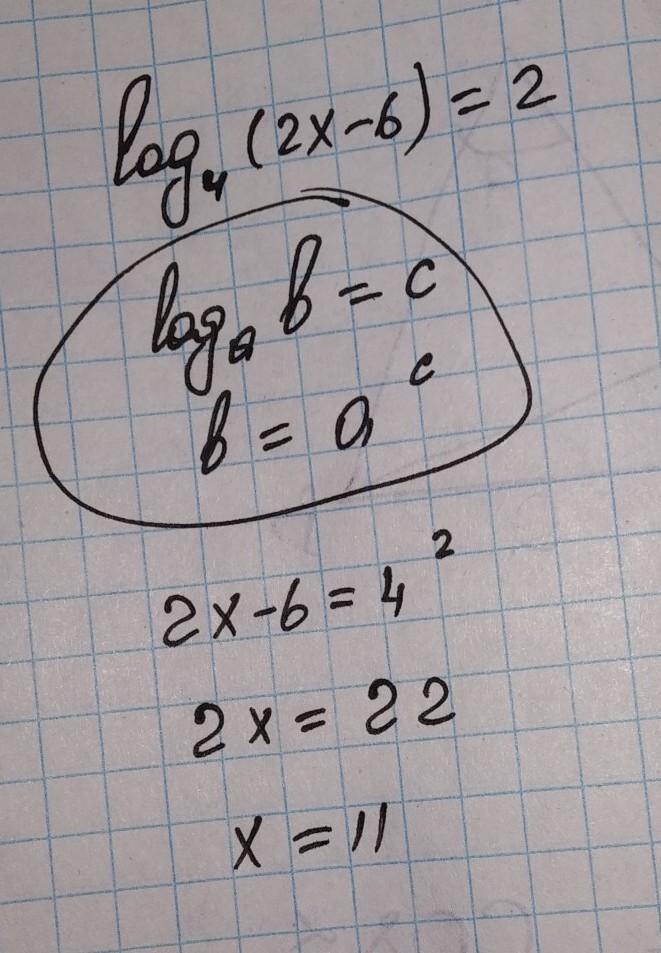 log₄ (2x-6) = 2
logₐ b = c
b = aᶜ
2x-6 = 4²
2x = 22
x = 11